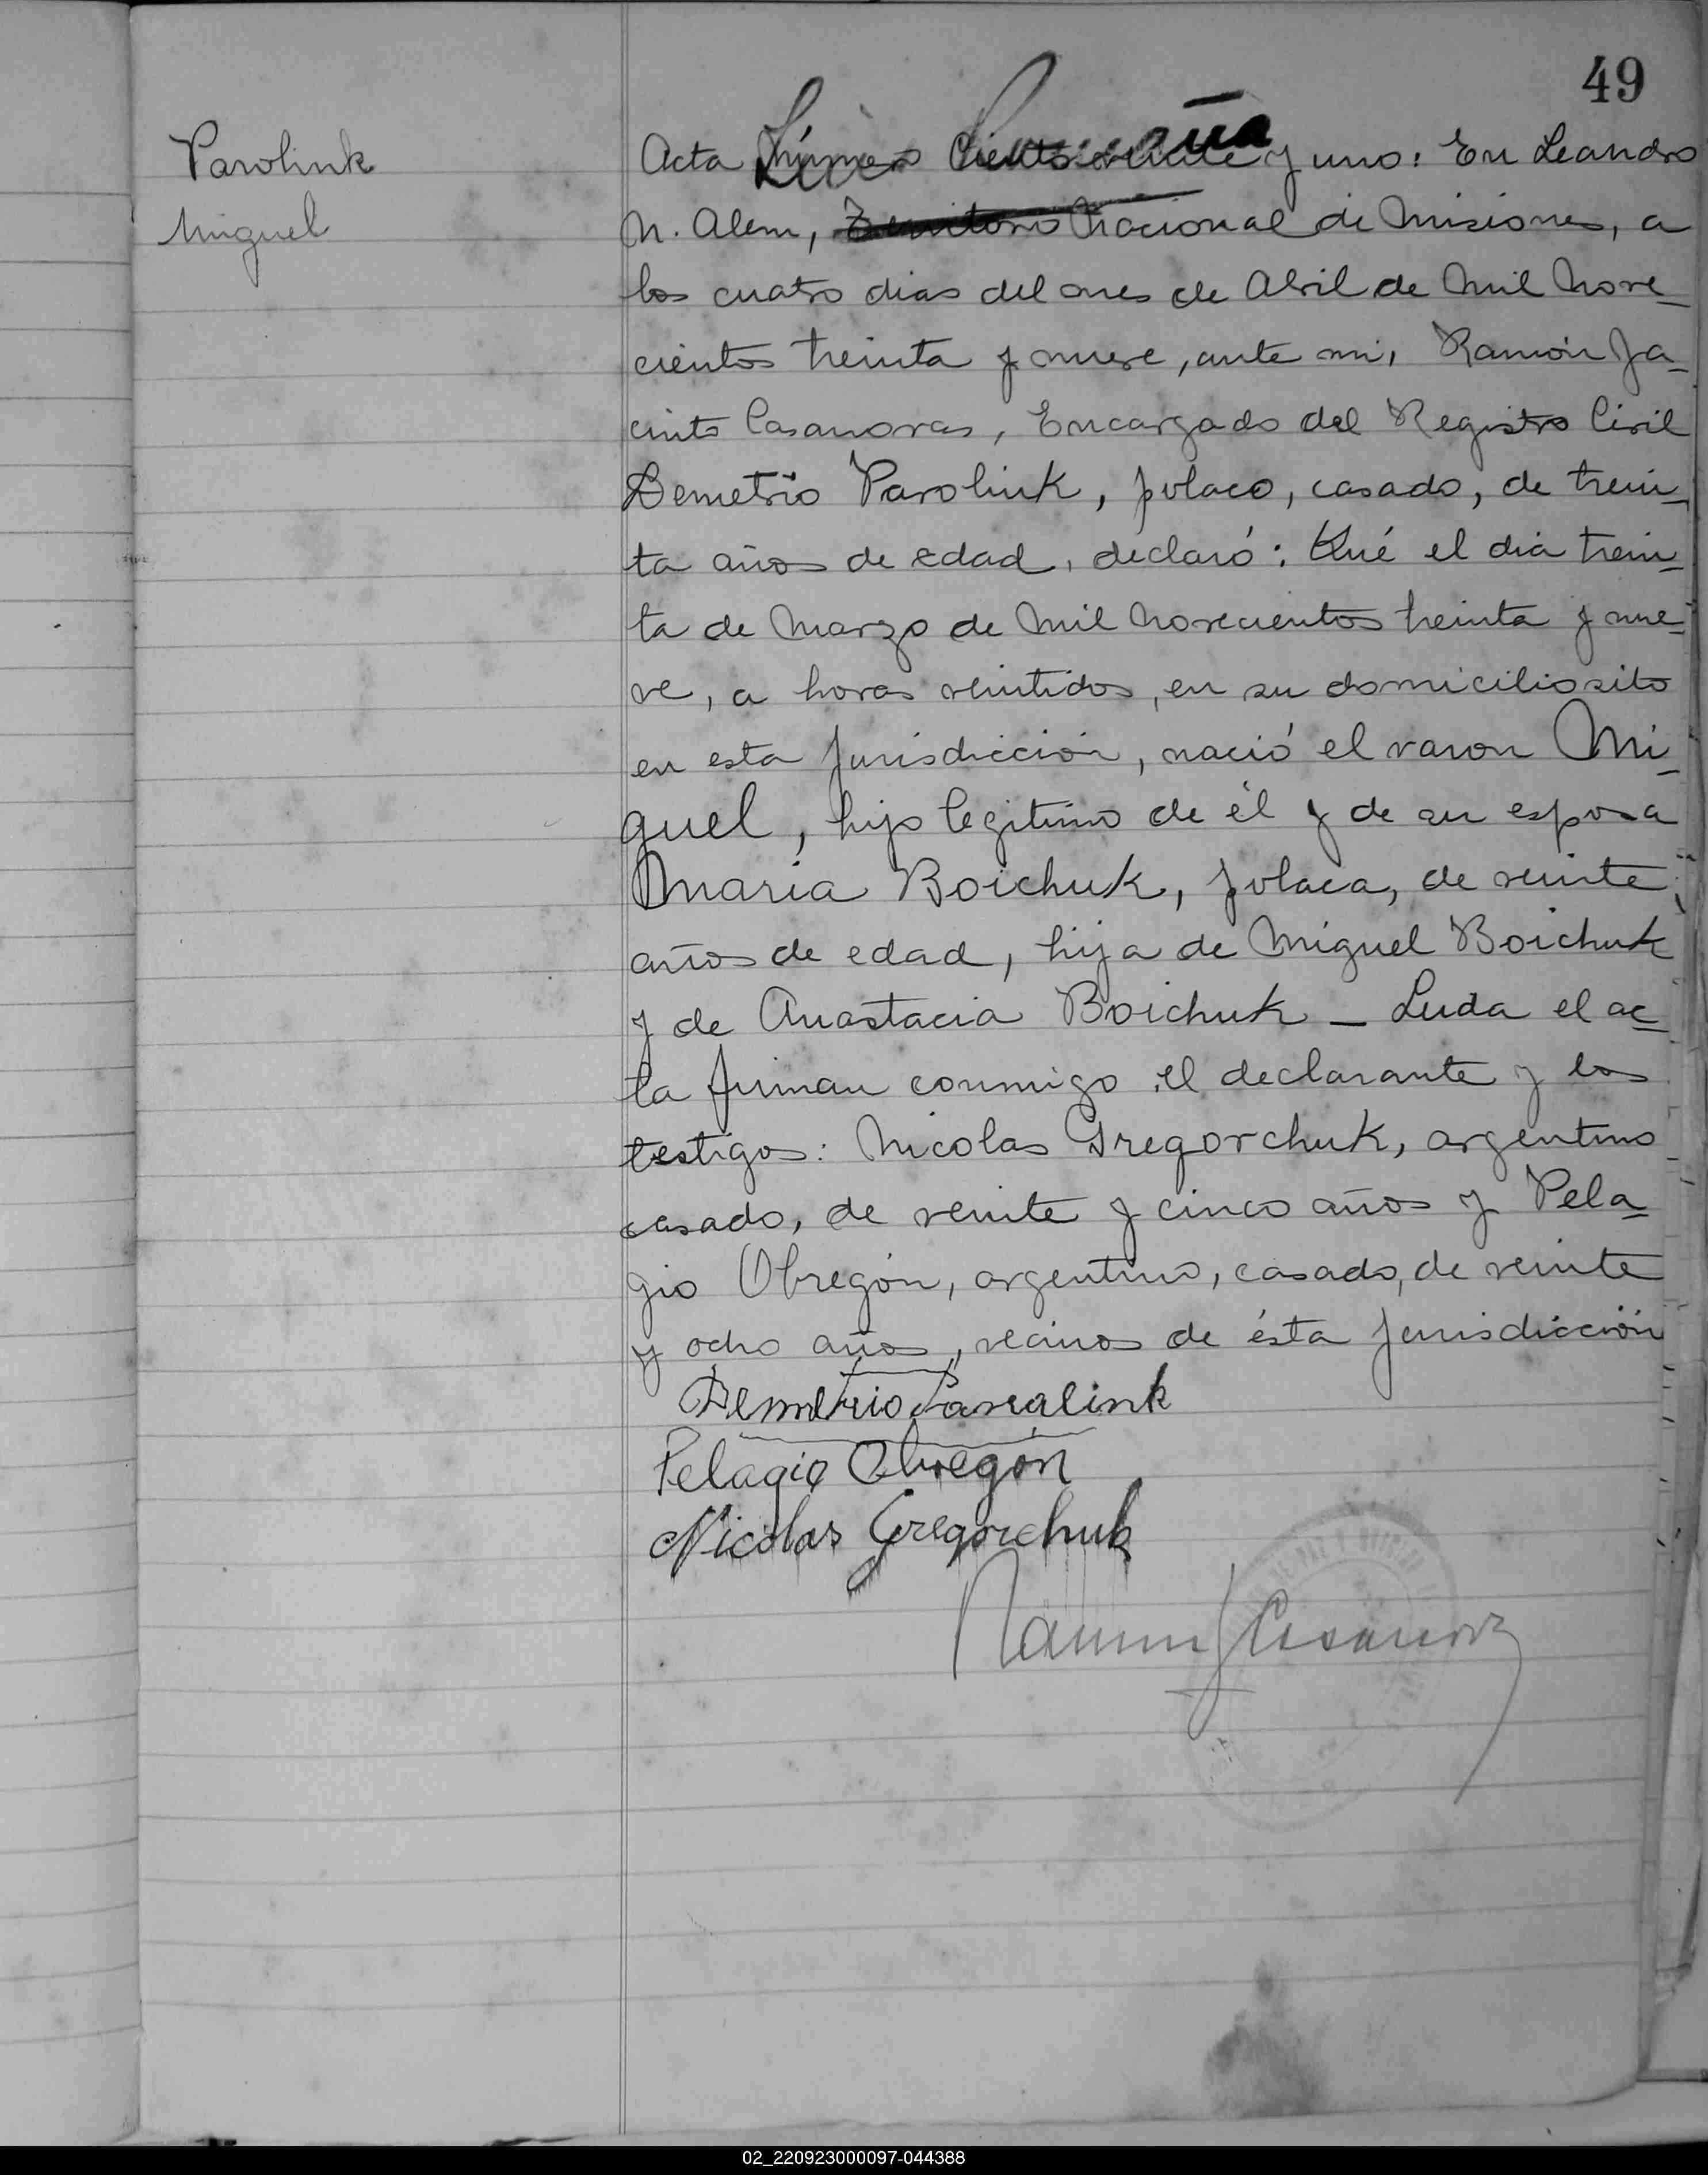 49
Parolink
Miguel
Acta Número Ciento veinte y uno: En Leandro
N. Alem, Territorio Nacional de Misiones, a
los cuatro dias del mes de Abril de Mil Nove-
cientos treinta y nueve, ante mi, Ramón Ja-
cinto Casanovas, Encargado del Registro Civil
Demetrio Parolink, polaco, casado, de trein-
ta años de edad, declaró: Qué el dia trein-
ta de Marzo de Mil Novecientos treinta y nue-
ve, a horas veintidos, en su domicilio sito
en esta Jurisdicción, nació el varon Mi-
guel, hijo legitimo de él y de su esposa
Maria Boichuk, polaca, de veinte
años de edad, hija de Miguel Boichuk
y de Anastacia Boichuk - Leida el ac-
ta firman conmigo el declarante y los
testigos: Nicolas Gregorchuk, argentino
casado, de veinte y cinco años y Pela-
gio Obregón, argentino, casado, de veinte
y ocho años, vecinos de ésta Jurisdicción
Demetrio
Pelagio Obregón
Nicolas Gregorchuk
Ramon J Casanova
02_220923000097-044388